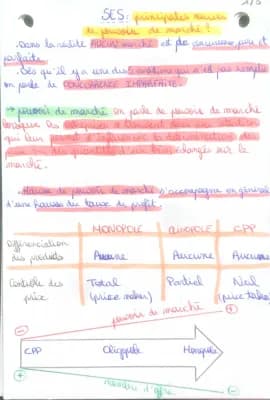 1/3
SES: principales sources
de pouvoir de marché ?
. Dans la réalité AUCUN marché est de concurrence pure et
parfaite.
. Dès qu'il y a une des conditions qui n'est pas remplie
on parle de CONCURRENCE IMPARFAITE.
→ pouvoir de marché on parle de pouvoir de marché
lorsque les
qui leur permet d'influencer la détermination de
prix des quantités d'un bien échangés sur le
marché.
. Hausse de pouvoir de marché s'accompagne en général
d'une hausse du taux de profit.
MONOPOLE OLIGOPOLE CPP
Différenciation
des produits Aucune Aucune Aucune
Contrôle des
prix Total Partiel Nul
(price maker) (price taker)
pouvoir de marché
- +
CPP Oligopole Monopole
+ nombre d'offre -